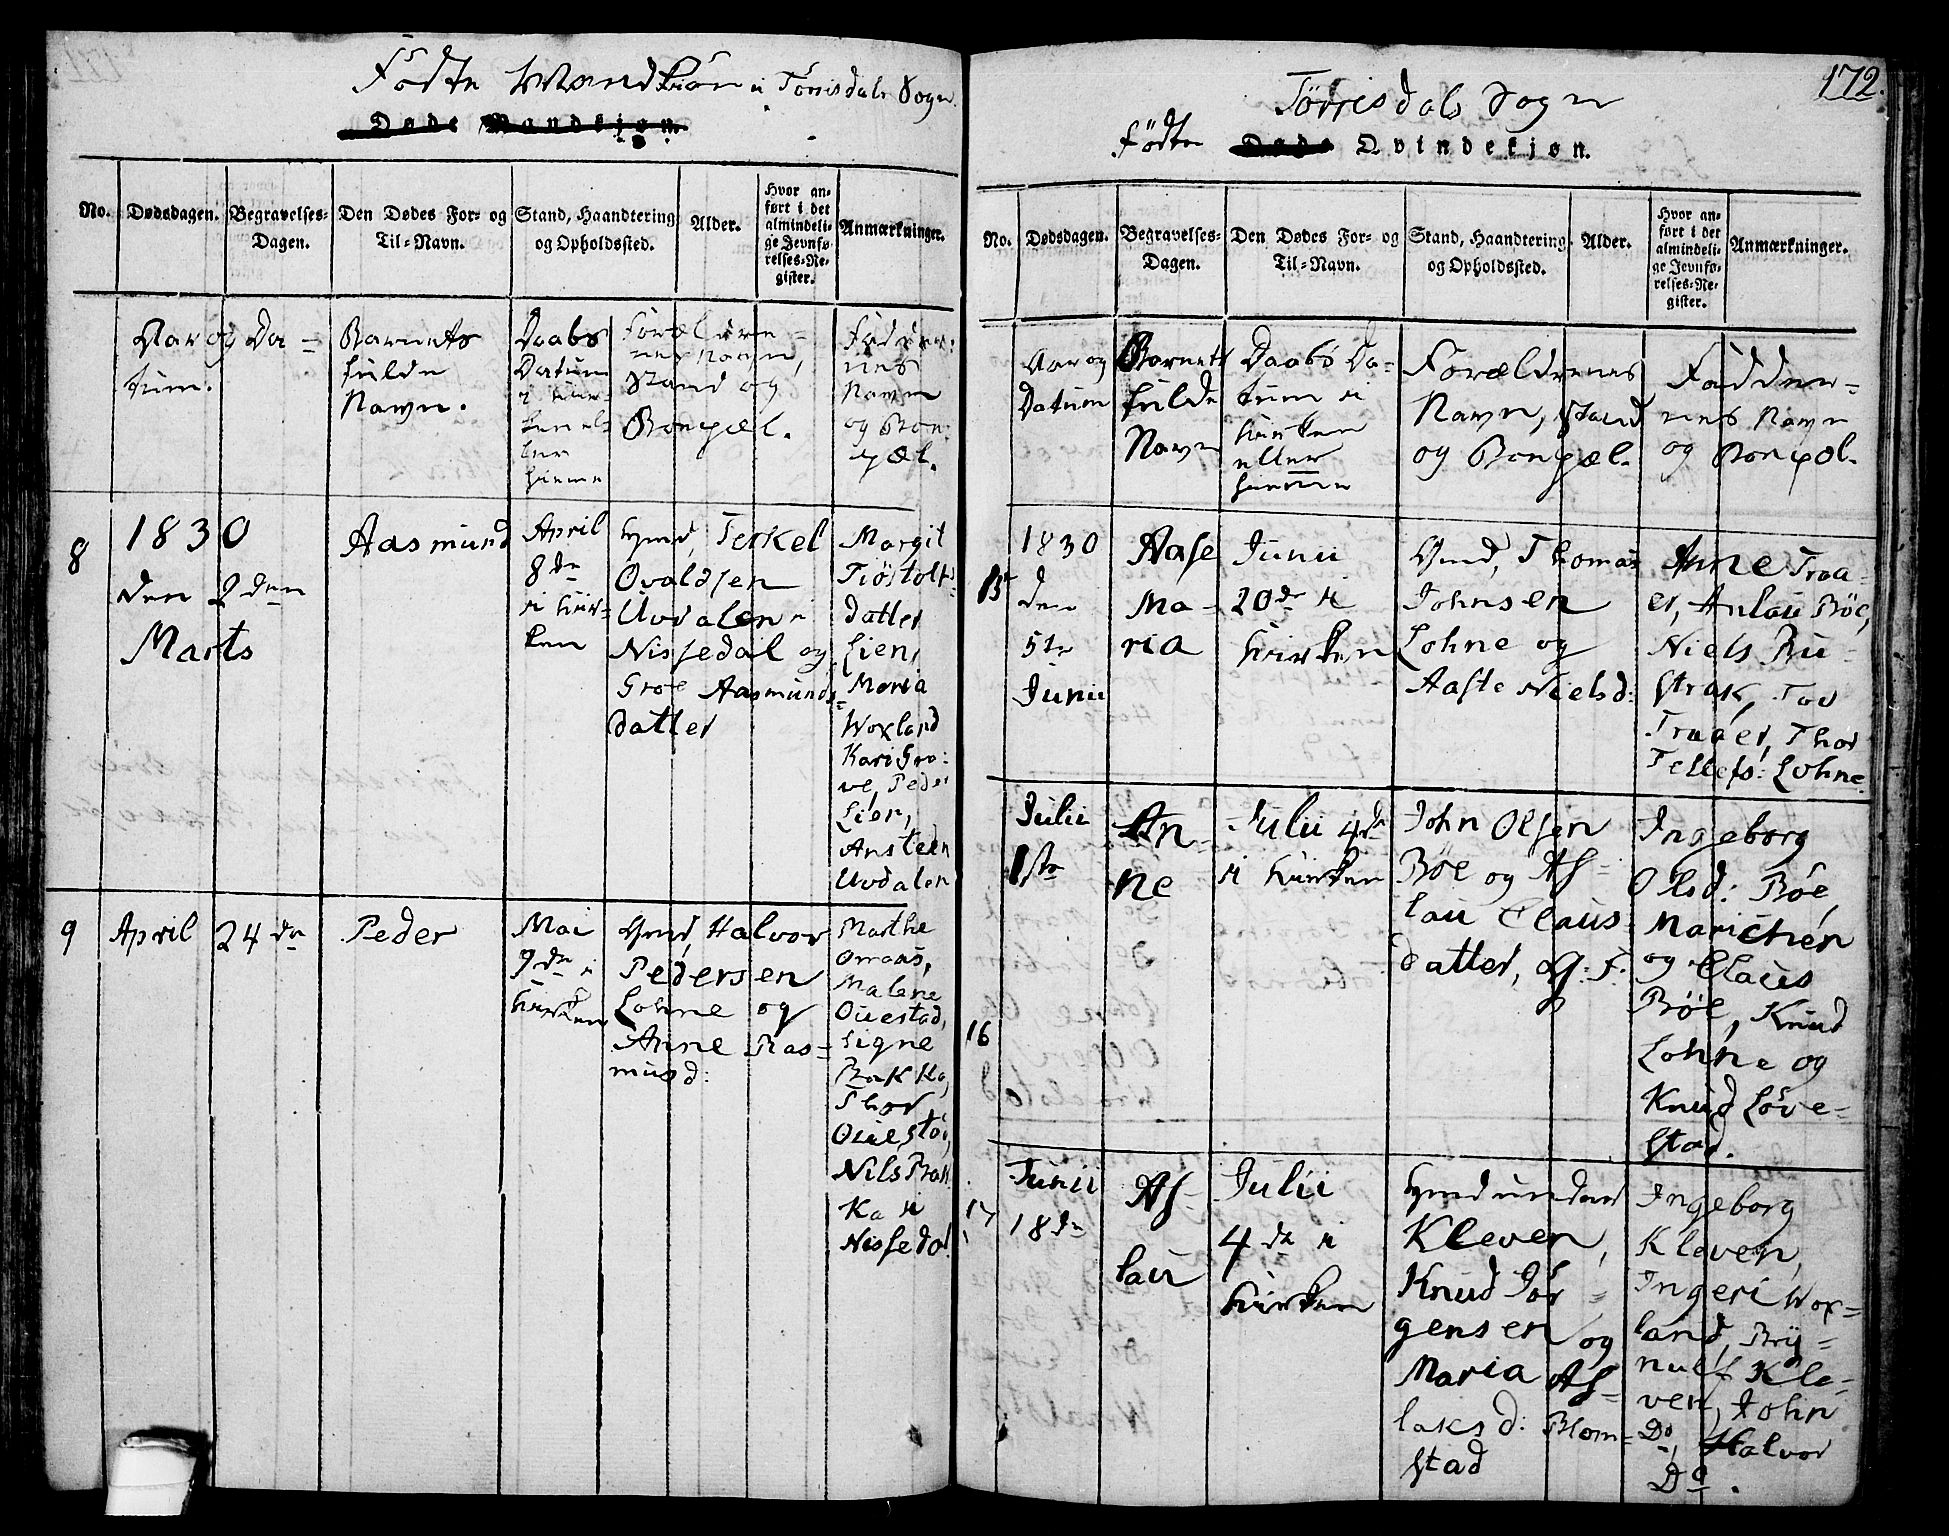 Fødte Mandkiøn i Törrisdals Sogn.
Døde Mandkjøn.
No.
Dødsdagen.
Begravelses-
Dagen.
Den Dødes For- og
Til-Navn.
Stand, Haandtering
og Opholdssted.
Alder.
Hvor an-
ført i det
almindeli-
ge Jevnfø-
relses-Re-
gister.
Anmærkninger.
Aar og Da-
tum.
Barnets
fulde
Navn.
Daabs
Datum
i kir-
ken el-
ler
hieme
Forældre-
nes Navn,
Stand og
Bopæl.
Faddder-
nes
Navn
og Bo-
pæl.
8
1830
den 2den
Marts
Aasmund
April
8de
i kir-
ken
Gmd, Terkel
Ovaldsen
Uvdalen i
Nissedal og
Groe Aasmunds-
datter
Margit
Tiöstolfs
datter
Lien,
Maria
Woxland
Kari Gro-
ve, Peder
Lier,
Ansteen
Uvdalen
9
April 24de
Peder
Mai
9de i
kirken
Gmd, Halvor
Pedersen
Lohne og
Anne Ras-
musd:
Marthe
Omaas,
Malene
Ouestad,
Signe
Bakka,
Thor
Ouestad,
Nils Bak-
ka i
Nissedal
172.
Törrisdals Sogn
Födte Døde Qvindekjøn.
No.
Dødsdagen.
Begravelses-
Dagen.
Den Dødes For- og
Til-Navn.
Stand, Haandtering
og Opholdssted.
Alder.
Hvor an-
ført i det
almindeli-
ge Jevnfø-
relses-Re-
gister.
Anmærkninger.
Aar og
Datum
Barnets
fulde
Navn
Daabs Da-
tum i
kirken
eller
hieme
Forældrenes
Navn, Stand
og Bopæl.
Fadder-
nes Navn
og Bopæl.
15
1830
den
5te
Junii
Aase
Ma-
ria
Junii
20de i
kirken
Gmd, Thomas
Johnsen
Lohne og
Aaste Nielsd:
Anne Traa-
er, Anlau Böe,
Niels Bu-
strak, Tov
Traaer, Thor
Tellefs: Lohne
16
Julii
1ste
An-
ne
Julii 4de
i kirken
John Olsen
Böe og As-
lau Claus-
datter, Og: F.
Ingeborg
Olsd: Böe,
Marichen
og Claus
Böe, Knud
Lohne og
Knud Löve-
stad.
17
Junii
18de
As-
lau
Julii
4de i
kirken
Gmd under
Kleven,
Knud Jör-
gensen og
Maria As-
laksd: Blom-
stad
Ingeborg
Kleven,
Ingeri Wox-
land, Bry-
nulf Kle-
ven, John
Do, Halvor
Do.